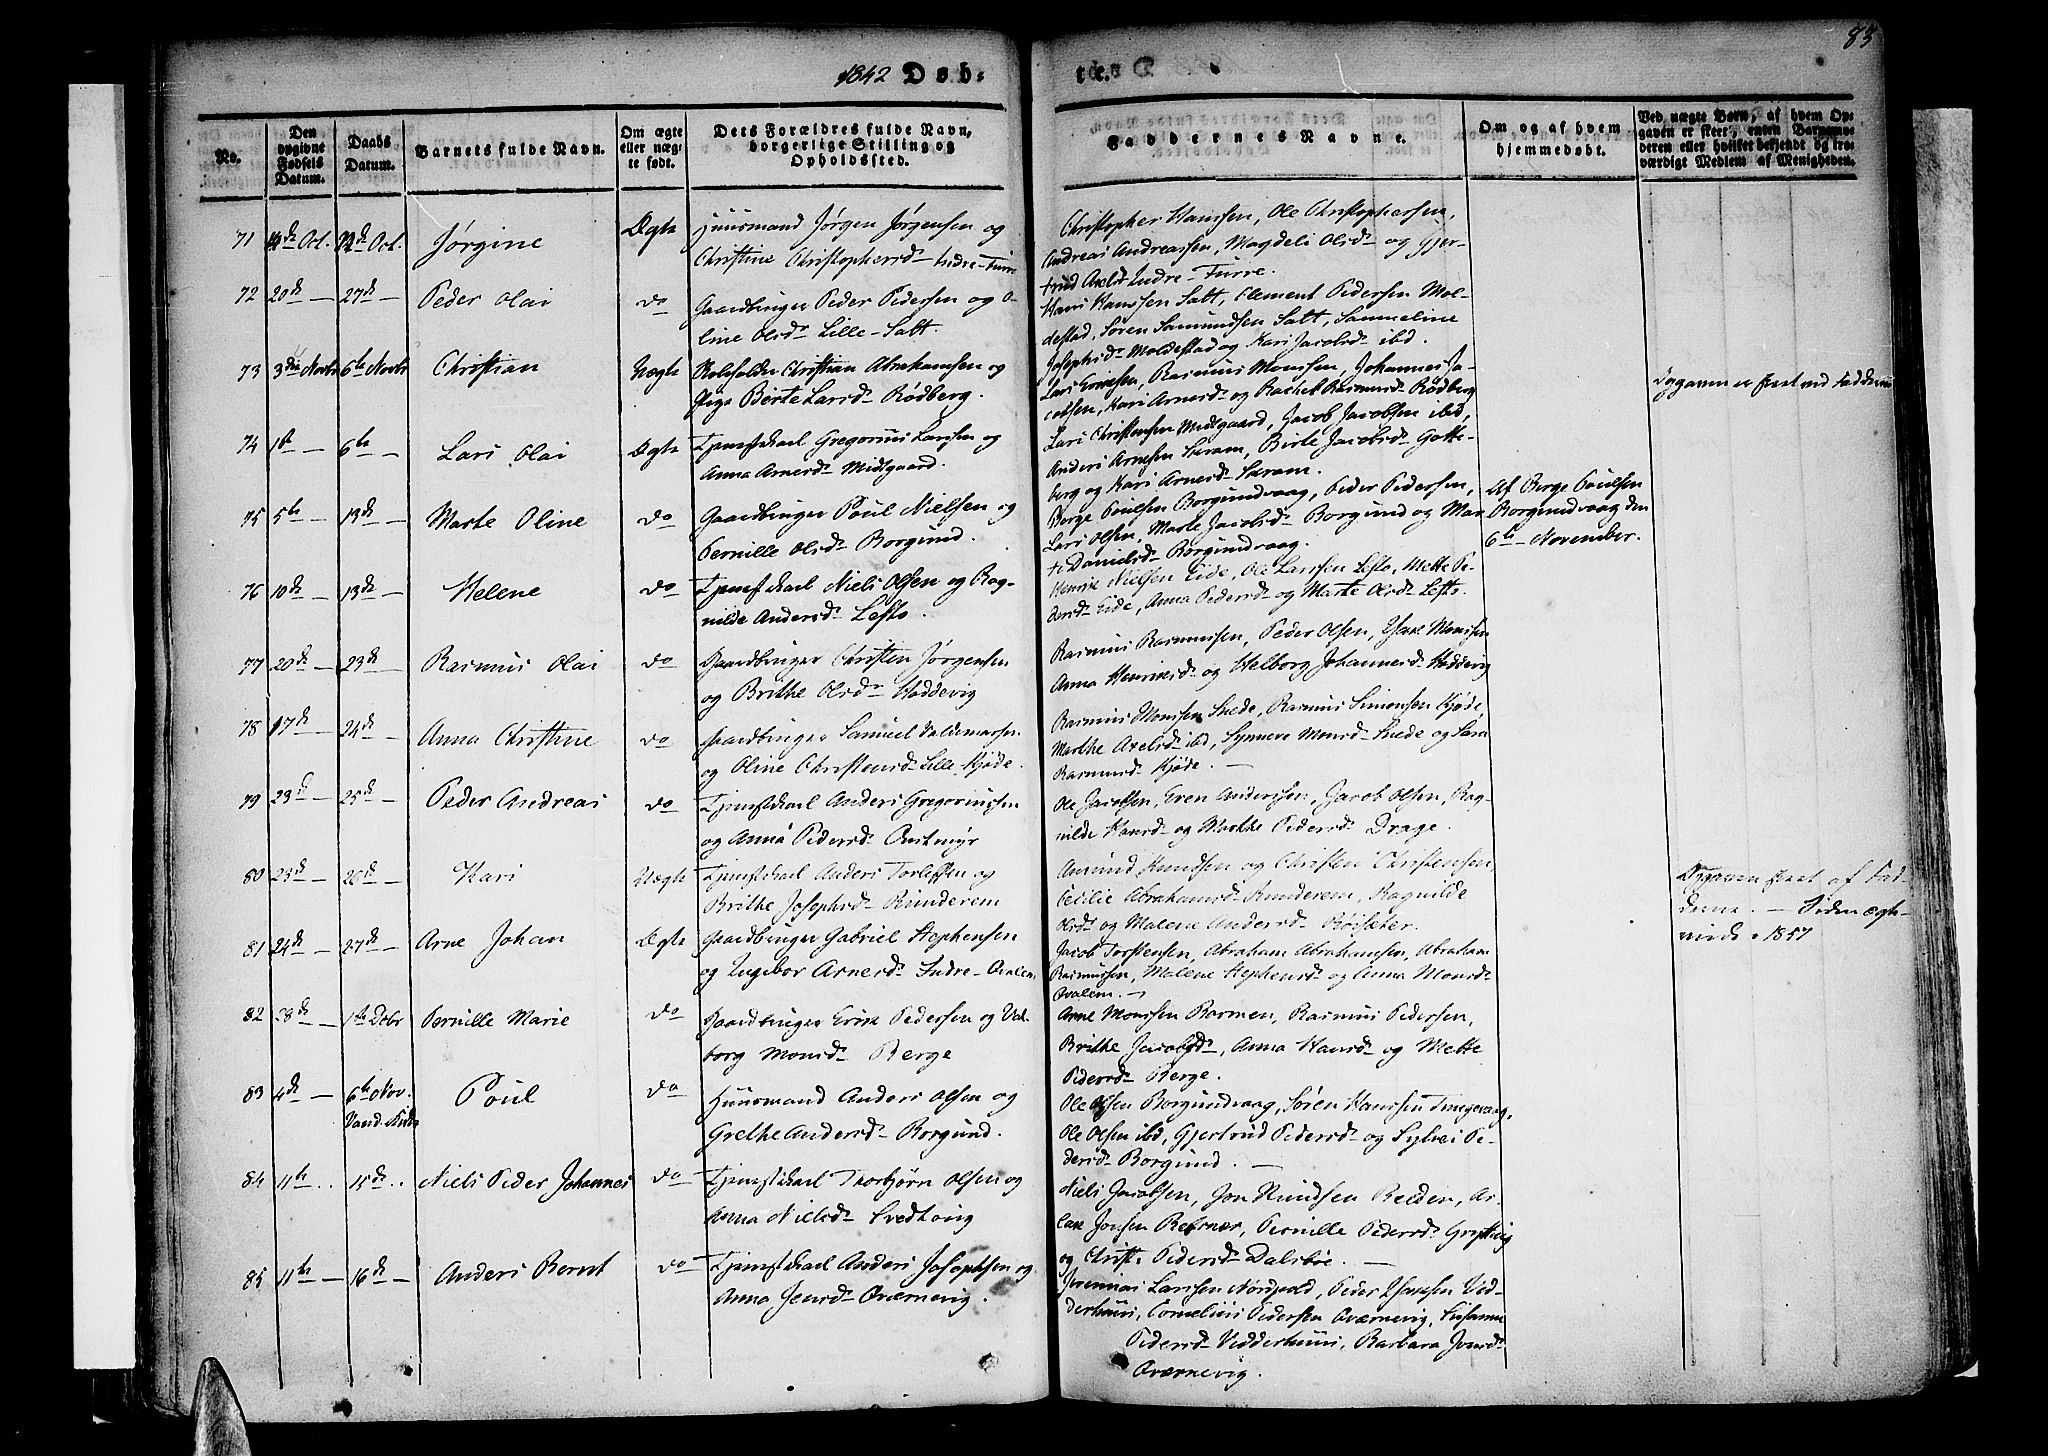 83
1842 Døb=
te.
No.
Den opgivne Fødsels Datum.
Daabs Datum.
Barnets fulde Navn.
Om ægte eller uægte født.
Dets Forældres fulde Navn, borgerlige Stilling og Opholdssted.
Faddernes Navne.
Om og af hvem hjemmedøbt.
Ved uægte Børn, af hvem Opgaven er skeet, enten Barnemoderen eller hvilket bekjendt og troværdigt Medlem af Menigheden.
71 Oct. Oct. Jørgine Ægte Huusmand Jørgen Jørgensen og
Christine Christophersd. Indre-Furre
Christopher Hansen, Ole Christophersen,
Andreas Andreassen, Magdeli Olsd. og Gjer-
trud Axelsd. Indre-Furre.
72 20de — 27de — Peder Olai do Gaardbruger Peder Pedersen og O-
line Olsd. Lille-Salt.
Hans Hanssen Salt, Clement Pedersen Mol-
destad, Søren Samundsen Salt, Sammeline
Josephsd. Moldestad og Kari Jacobsd. ibd.
73 3die Novbr 6te Novbr Christian Uægte Christian Abrahamsen og
Pige Berte Larsd. Rødberg.
Lars Ericksen, Rasmus Monsen, Johannes Ja-
cobsen, Kari Arnesd. og Rachel Rasmusd. Rødberg
Opgaven er skeet ved Fadderne
74 1ste — 6te — Lars Olai Ægte Tjenestekarl Gregorius Larssen og
Anna Arnesd. Midtgaard.
Lars Christensen Midtgaard, Jacob Jacobsen ibd,
Anders Arnesen Skram, Birte Jacobsd. Gotte-
berg og Kari Arnesd. Skram.
75 5te — 13de — Marte Oline do Gaardbruger Poul Nielsen og
Pernille Olsd. Borgund.
Berge Poulsen Borgundvaag, Peder Pedersen,
Lars Olsen, Marte Jacobsd. Borgund og Mar
te Danielsd. Borgundvaag.
Af Berge Poulsen
Borgundvaag den
6te November.
76 10de — 13de — Helene do Tjenestekarl Niels Olsen og Rag-
nilde Andersd. Lefto.
Henrik Nielsen Eide, Ole Larssen Lefto, Mette Pe-
dersd. Eide, Anna Pedersd. og Marte Olsd. Lefto.
77 20de — 23de — Rasmus Olai do Gaardbruger Christen Jørgensen
og Brithe Olsd. Hoddevig
Rasmus Rasmussen, Peder Olsen, Isak Monssen
Anna Henriksd. og Helborg Johannesd. Hoddevig
78 17de 24de — Anna Christine do Gaardbruger Samuel Valdemarsen
og Oline Christensd. Lille-Kjøde.
Rasmus Monssen, Rasmus Simonsen Kjøde,
Marthe Axelsd. ibd, Synneve Monsd. og Sara
Rasmusd. Kjøde. —
79 23de — 25de — Peder Andreas do Tjenestekarl Anders Gregoriussen
og Anna Pedersd.
Ole Jacobsen, Even Anderssen, Jacob Olsen, Rag-
nilde Hansd. og Marthe Pedersd. Drage.
80 23de — 26de — Kari Uægte Tjenestekarl Anders Torleffsen og
Brithe Josephsd. Runderem
Amund Knudsen og Christen Christensen
Cecilie Abrahamsd. Runderem, Ragnilde
Olsd. og Malene Andersd. Røiseter.
Opgaven skeet af Fad-
derne. — Siden ægte-
viede 1857
81 24de — 27de — Arne Johan Ægte Gaardbruger Gabriel Stephensen
og Ingebor Arnesd. Indre-Qvalem
Jacob Torstensen, Abraham Abrahamsen, Abraham
Rasmussen, Malene Stephensd. og Anna Monsd.
Qvalem. —
82 28de — 1ste Dcbr Pernille Marie do Gaardbruger Erik Pedersen og Vel-
borg Monsd. Berge
Arne Monssen Barmen, Rasmus Pedersen,
Brithe Jacobsd., Anna Hansd. og Mette
Pedersd. Berge.
83 4de — 6te Nov. Poul do Huusmand Anders Olsen og
Grethe Andersd. Borgund.
Ole Olsen Borgundvaag, Søren Hanssen
Ole Olsen ibd, Gjertrud Pedersd. og Sylvei Pe-
dersd. Borgund. —
84 11te .. 15de .. Niels Peder Johannes do Tjenestekarl Thorbjørn Olsen og
Anna Nielsd.
Niels Jacobsen, Jon Knudsen Belden, As-
lak Jonsen Refsnær, Pernille Pedersd.
og Christ. Pedersd. Dalsbøe. —
85 11te — 16de — Anders Bernt do Tjenestekarl Anders Josephsen og
Anna Jensd. Qværnevig.
Jeremias Larssen Nordpold, Peder Isaksen Ved-
derhuus, Cornelius Pedersen Qværnevig, Susanne
Pedersd. Vedderhuus, Barbara Jonsd.
Qværnevig.